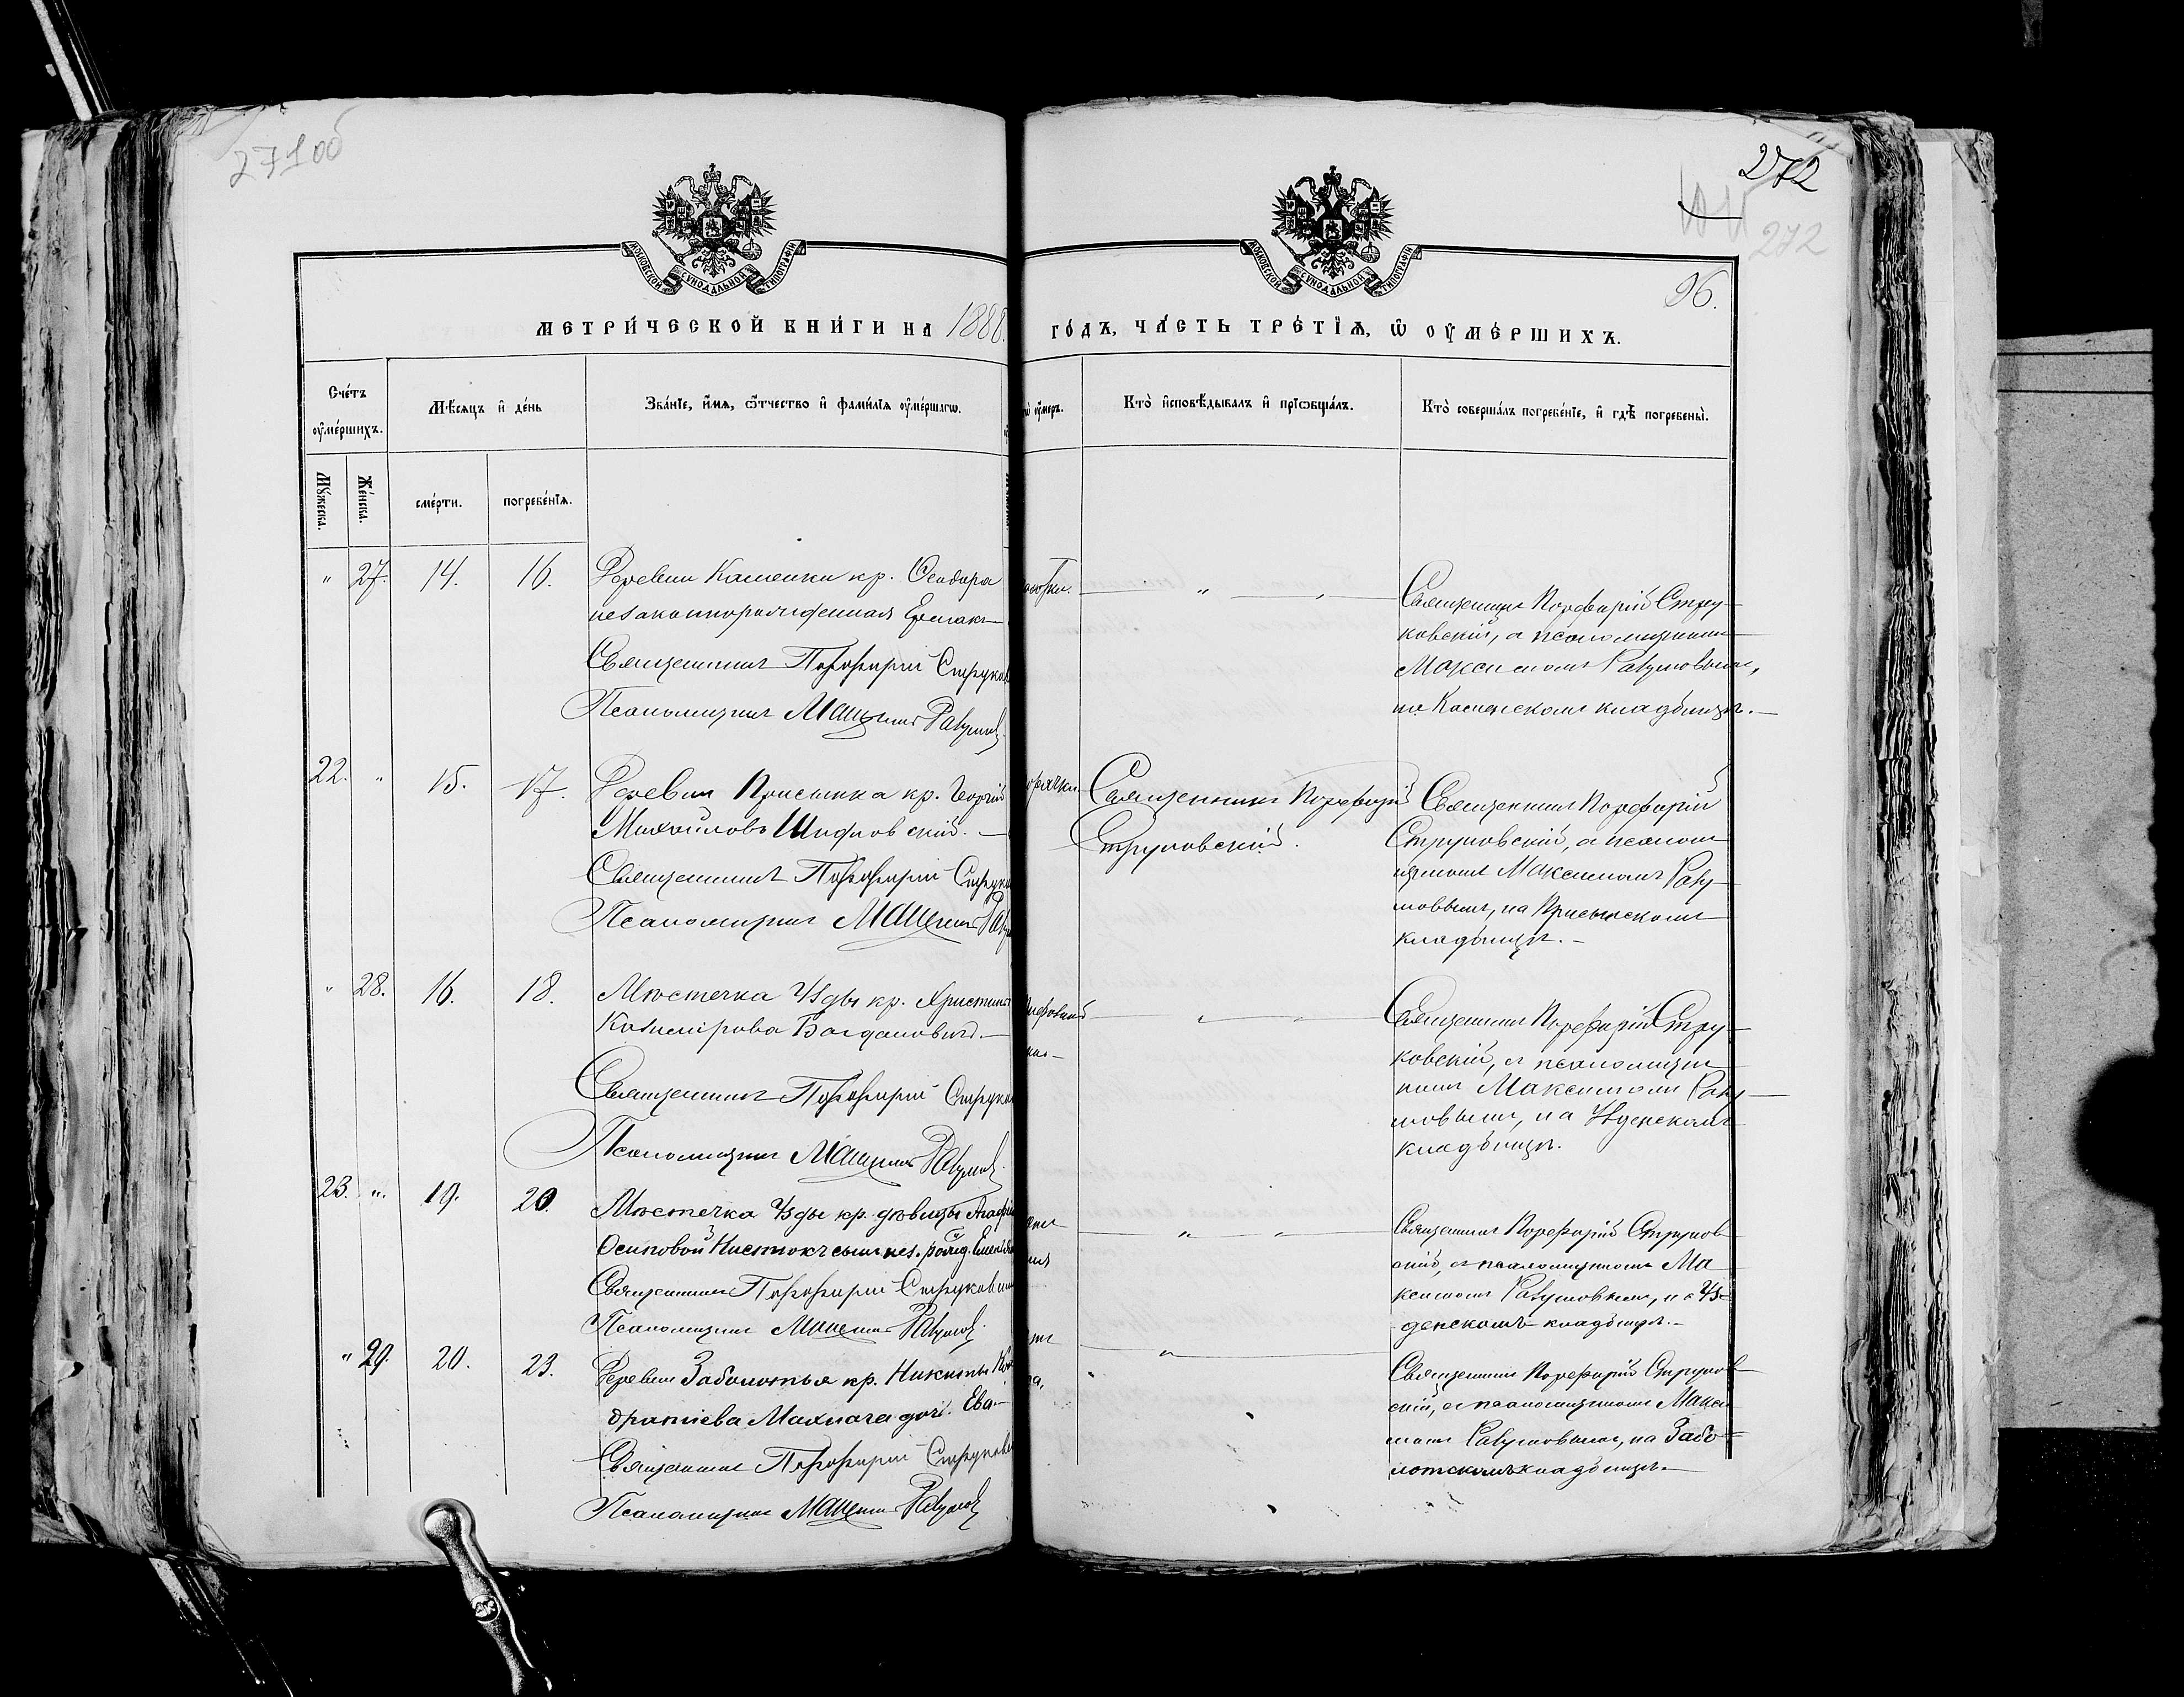 271об
272
272
96.
МОСКОВСКОЙ СѴНОДАЛЬНОЙ ТИПОГРАФІИ
МОСКОВСКОЙ СѴНОДАЛЬНОЙ ТИПОГРАФІИ
МЕТРИ́ЧЕСКОЙ КНИ́ГИ НА 1888.
ГО́ДЪ, ЧА́СТЬ ТРЕ́ТІѦ, Ѡ҆ ОУ҆МЕ́РШИХЪ.
Сче́тъ оу҆ме́ршихъ.
Мѣ́сяцъ и҆ де́нь
Зва́нїе, и҆́мѧ, ѻ҆́тчество и҆ фами́лїѧ оу҆ме́ршагѡ.
оу҆́меръ.
Кто̀ и҆сповѣ́дывалъ и҆ прїѡбща́лъ.
Кто̀ соверша́лъ погребе́нїе, и҆ гдѣ̀ погребены̀.
Мꙋ́жеска.
Же́нска.
сме́рти.
погребе́нїѧ.
" 27. 14. 16. Деревни Каменки кр. Ѳеодора
незаконнорожденная
Священникъ Порфирій Струков
Псаломщикъ Максимъ Разумов
" "
Священникъ Порфирій Стру-
ковскій, с псаломщикомъ
Максимомъ Разумовымъ,
на Каменскомъ кладбищѣ.
22. " 15. 17. Деревни Присынка кр. Георгій
Михайловъ Шидловскій.
Священникъ Порфирій Струков
Псаломщикъ Максимъ Разу
орячки. Священникъ Порфирій
Струковскій.
Священникъ Порфирій
Струковскій, с псалом
щикомъ Максимомъ Разу-
мовымъ, на Присынскомъ
кладбищѣ.
" 28. 16. 18. Мѣстечка Узды кр. Христина
Казимірова Богдановичъ.
Священникъ Порфирій Струков
Псаломщикъ Максимъ Разумов
" "
Священникъ Порфирій Стру-
ковскій, с псаломщи
комъ Максимомъ Разу-
мовымъ, на Узденскомъ
кладбищѣ.
23. " 19. 20. Мѣстечка Узды кр. дѣвицы Агафіи
Осиповой сынъ нез. рожд.
Священникъ Порфирій Струковскій
Псаломщикъ Максимъ Разумов
" "
Священникъ Порфирій Струков
скій, с псаломщикомъ Ма
ксимомъ Разумовымъ, на Уз-
денскомъ кладбищѣ.
" 29. 20. 23. Деревни Заболотья кр. Никиты Ко
дратіева Махнача дочь Ева
Священникъ Порфирій Струков
Псаломщикъ Максимъ Разумов
"
Священникъ Порфирій Струков
скій, с псаломщикомъ Макси
момъ Разумовымъ, на Забо-
лотскомъ кладбищѣ.